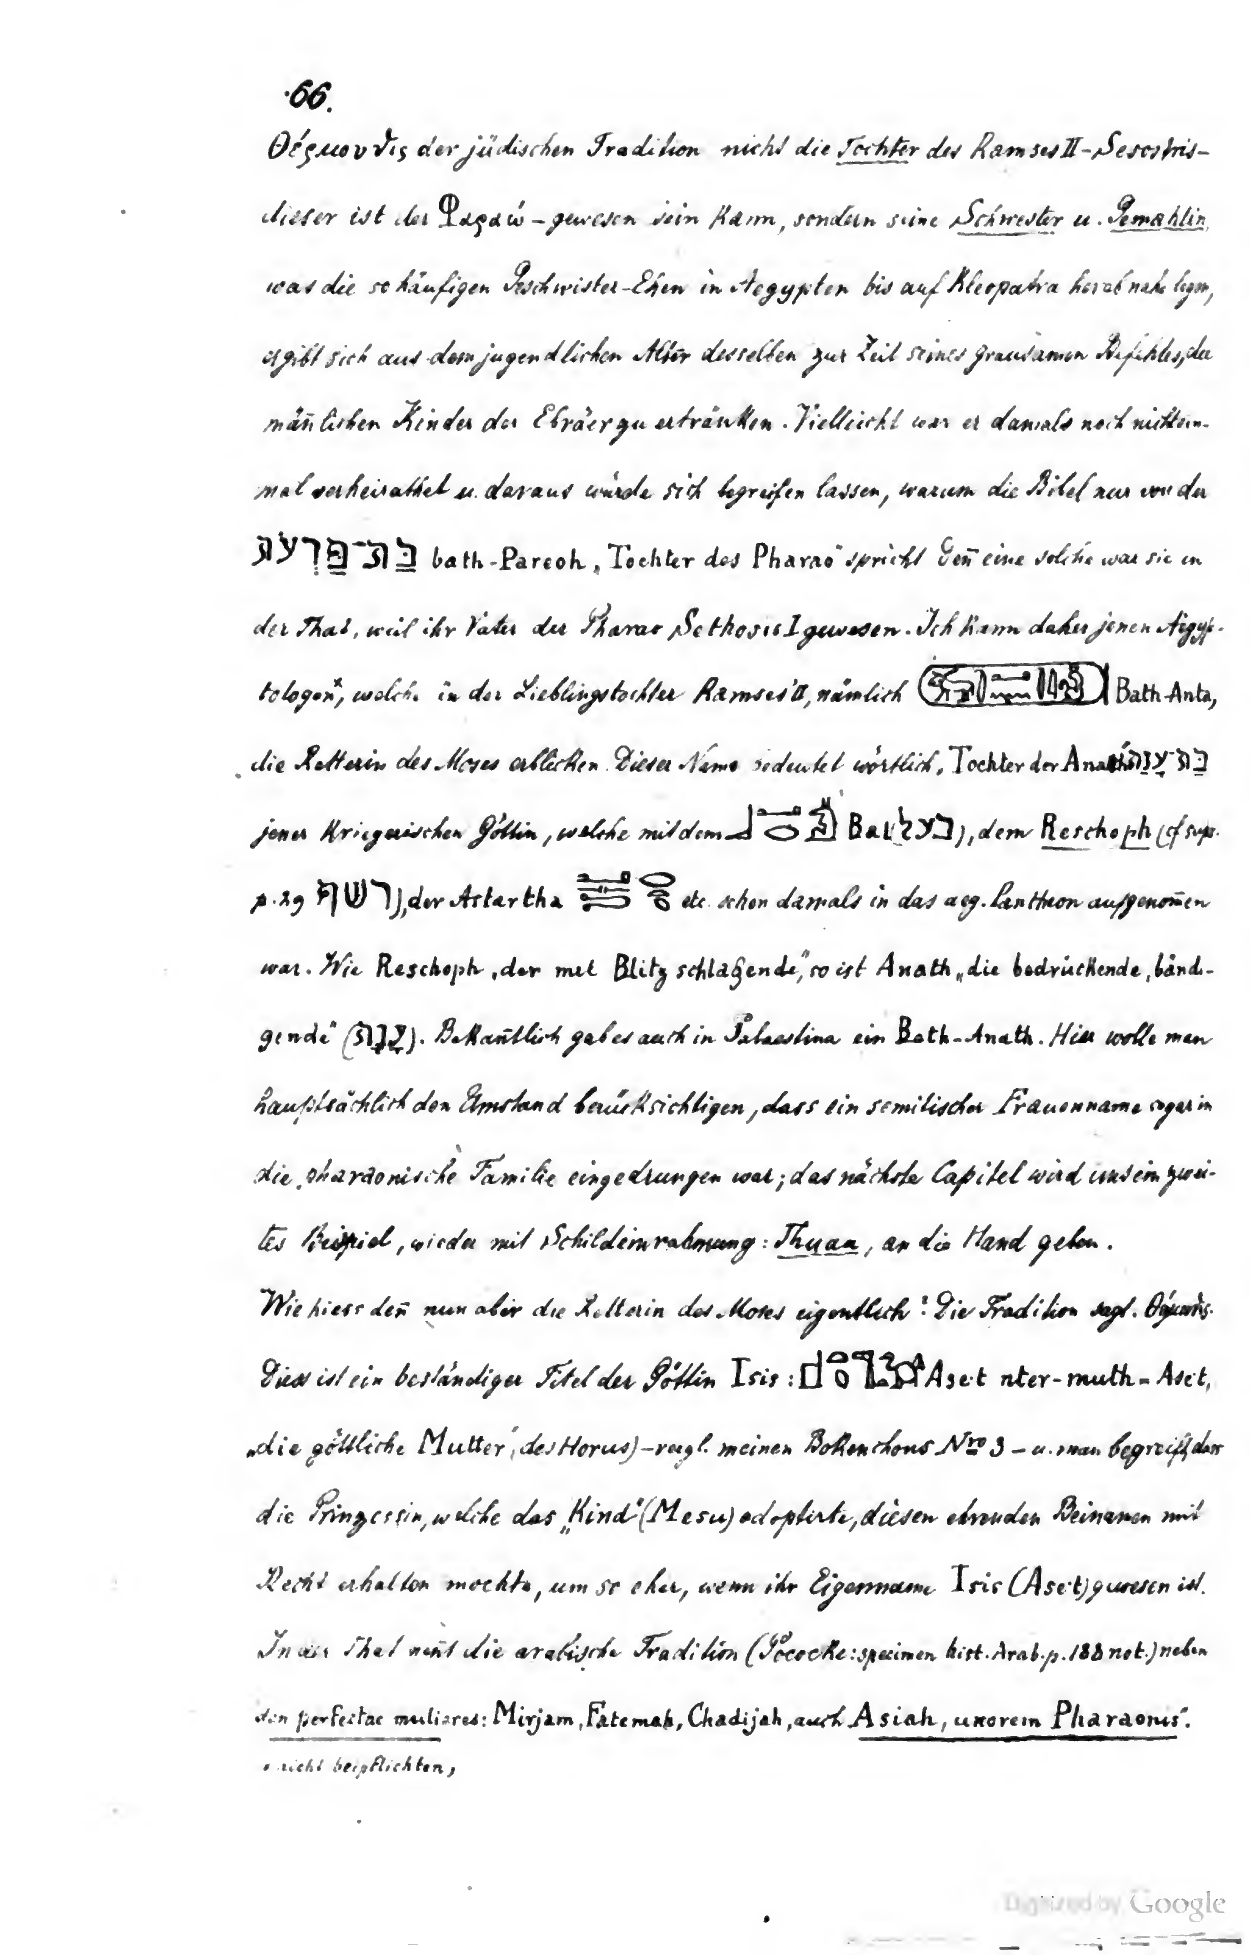 66.
Θέρμουθις der jüdischen Tradition nicht die Tochter des Ramses II-Sesostris-
dieser ist der Φαραώ - gewesen sein kann, sondern seine Schwester u. Gemahlin,
was die so häufigen Geschwister-Ehen in Aegypten bis auf Kleopatra herab nahe legen,
ergibt sich aus dem jugendlichen Alter desselben zur Zeit seines grausamen Befehles, die
mäñlichen Kinder der Ebräer zu ertränken. Vielleicht war er damals noch nicht ein-
mal verheirathet u. daraus würde sich begreifen lassen, warum die Bibel nur von der
בַּת־פַּרְעֹה bath-Pareoh „Tochter des Pharao" spricht. Deñ eine solche war sie in
der That, weil ihr Vater der Pharao Sethosis I gewesen. Ich kann daher jenen Aegyp-
tologen*, welche in der Lieblingstochter Ramses' II, nämlich Bath-Anta,
die Retterin des Moses erblicken. Dieser Name bedeutet wörtlich „Tochter der Anath
jener kriegerischen Göttin, welche mit dem Bal (בעל), dem Reschoph (cf supr.
p. 29 רשף), der Astartha etc. schon damals in das aeg. Pantheon aufgenom̃en
war. Wie Reschoph „der mit Blitz schlagende", so ist Anath „die bedrückende, bändi-
gende" (ענה). Bekañtlich gab es auch in Palaestina ein Beth-Anath. Hier wolle man
hauptsächlich den Umstand berücksichtigen, dass ein semitischer Frauenname sogar in
die pharaonische Familie eingedrungen war; das nächste Capitel wird uns ein zwei-
tes Beispiel, wieder mit Schildeinrahmung: Thuaa, an die Hand geben.
Wie hiess deñ nun aber die Retterin des Moses eigentlich? Die Tradition sagt: Θέρμουθις.
Diess ist ein beständiger Titel der Göttin Isis: Aset nter-muth = Aset,
„die göttliche Mutter" (des Horus) - vergl. meinen Bokenchons Nro 3 - u. man begreift, dass
die Prinzessin, welche das „Kind" (Mesu) adoptirte, diesen ehrenden Beinamen mit
Recht erhalten mochte, um so eher, wenn ihr Eigenname Isis (Aset) gewesen ist.
In der That neñt die arabische Tradition (Pococke: specimen hist. Arab. p. 188 not.) neben
den perfectae mulieres: Mirjam, Fatemah, Chadijah, auch Asiah, uxorem Pharaonis".
* nicht beipflichten,
Digitized by Google